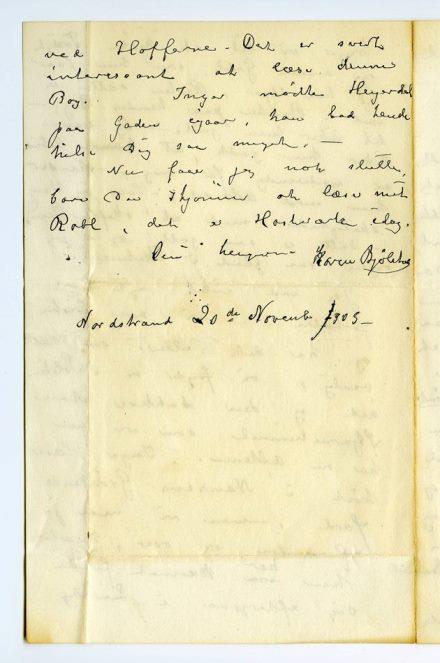 ved Hofferne. Det er svært
interessant at læse denne
Bog. Inga mødte Heyerdal
paa Gaden igaar, han bad hende
hilse Dig saa meget. —
Nu faar jeg nok slutte,
bare Du skjønner at læse mit
Rabl, det er Hastværk idag.
Din hengivne Karen Bjölstad
Nordstrand 20de Novemb 1905 —